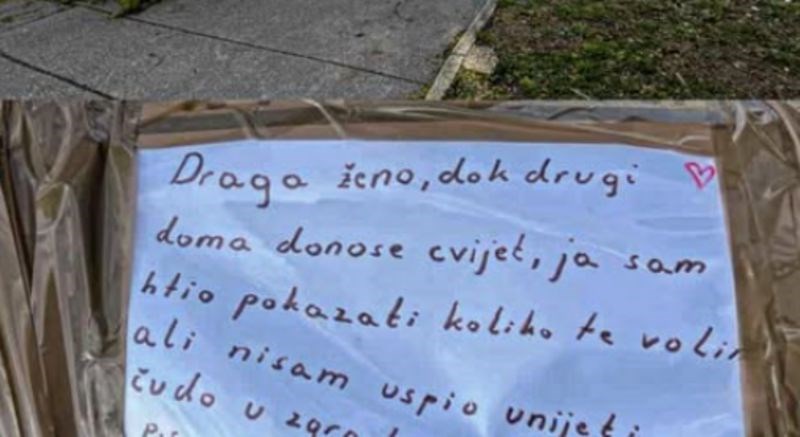 Draga ženo, dok drugi
doma donose cvijet, ja sam
htio pokazati koliko te volim
ali nisam uspio unijeti
čudo u